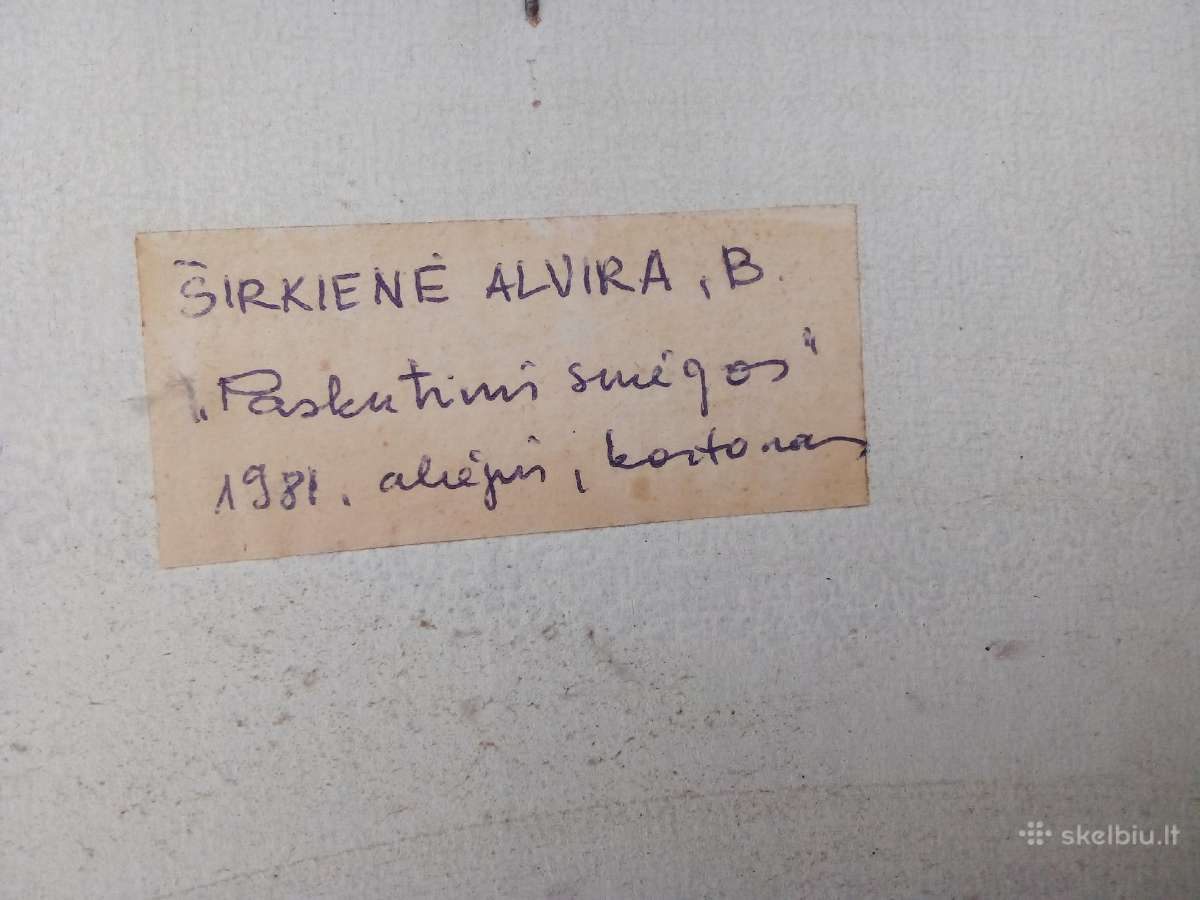 ŠIRKIENĖ ALVIRA, B.
„Paskutinis sniegas“
1981. aliejus, kartonas
skelbiu.lt